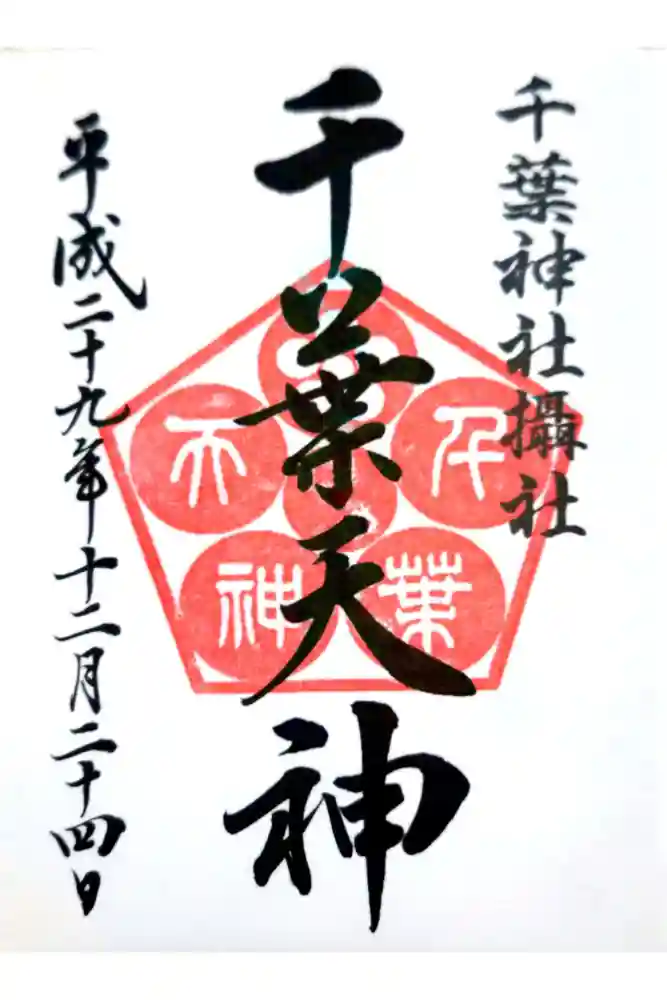 千葉神社攝社
千葉天神
平成二十九年十二月二十四日
千
葉
天
神